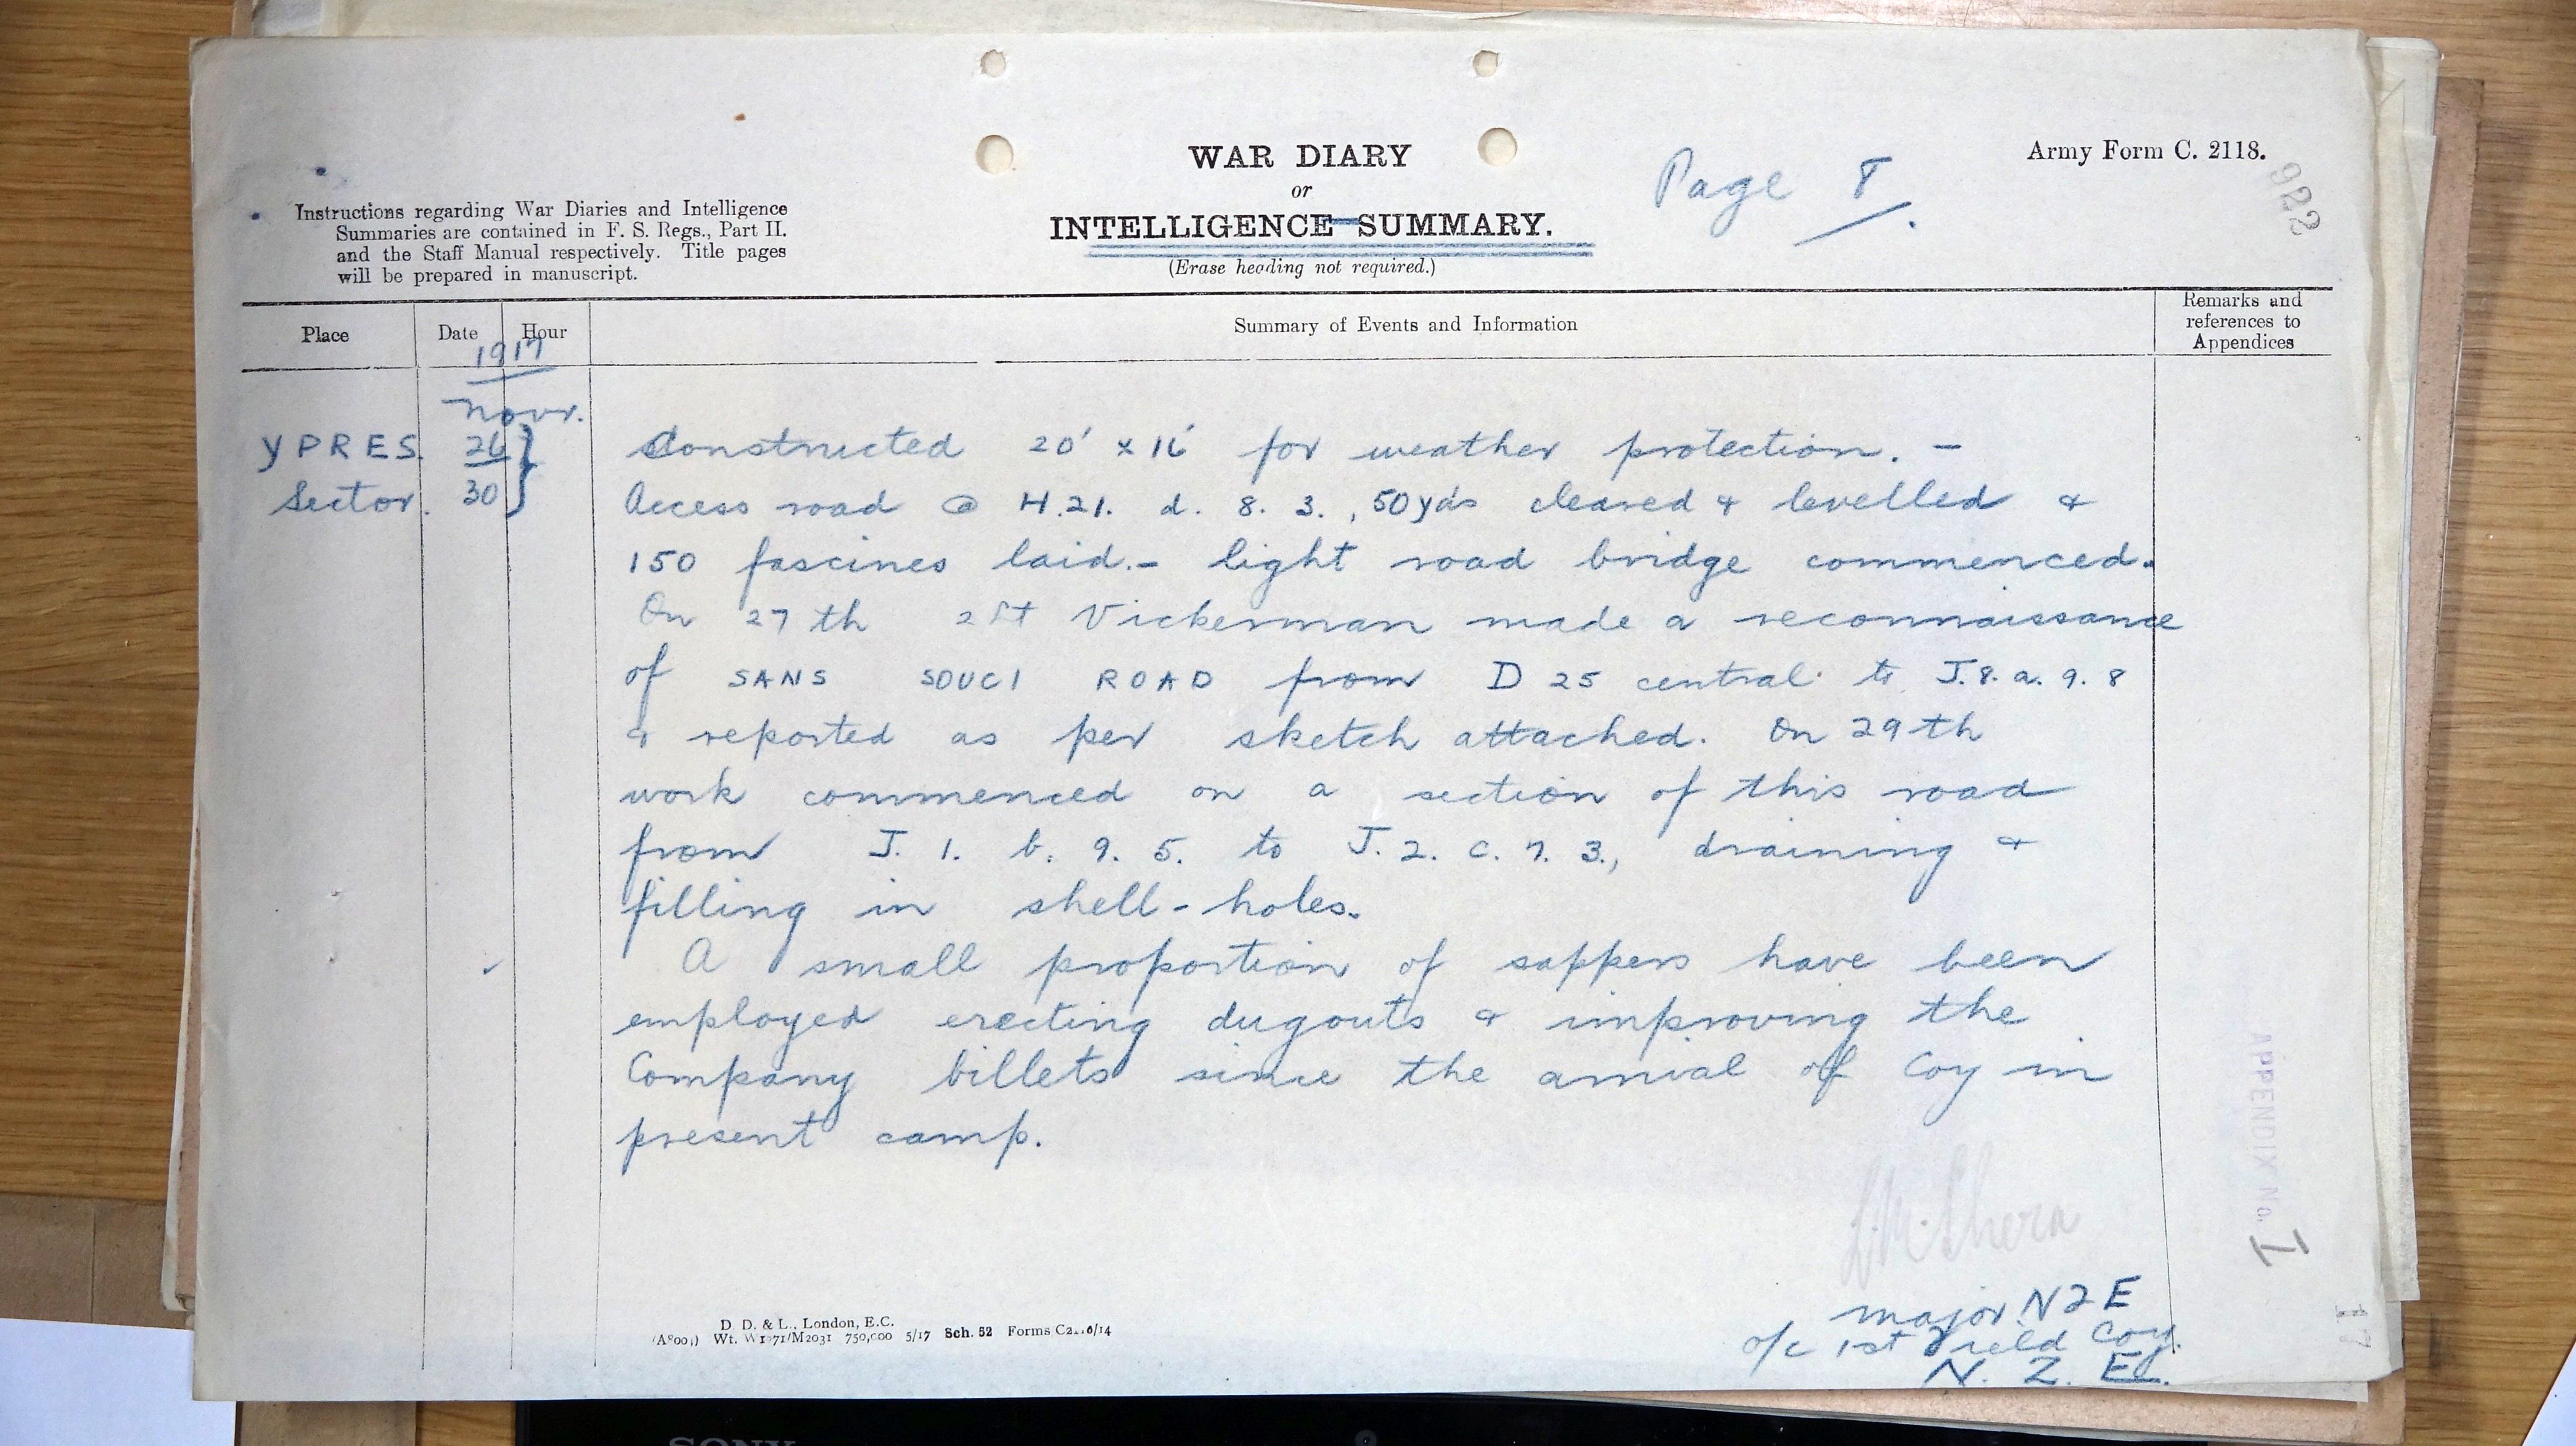 WAR DIARY
or
INTELLIGENCE SUMMARY.
(Erase heading not required.)
Page 8.
Army Form C. 2118.
922
Instructions regarding War Diaries and Intelligence
Summaries are contained in F. S. Regs., Part II.
and the Staff Manual respectively. Title pages
will be prepared in manuscript.
Place
Date
Hour
Summary of Events and Information
Remarks and
references to
Appendices
1917
Novr.
YPRES 26
Sector. 30
Constructed 20' x 16' for weather protection. -
Access road @ H.21. d. 8. 3., 50yds cleared & levelled &
150 fascines laid. - light road bridge commenced.
On 27th 2Lt Vickerman made a reconnaissance
of SANS SOUCI ROAD from D 25 central to J.8.a.9.8
& reported as per sketch attached. On 29th
work commenced on a section of this road
from J. 1. b. 9. 5. to J. 2. c. 7. 3., draining &
filling in shell-holes.
A small proportion of sappers have been
employed erecting dugouts & improving the
Company billets since the arrival of Coy in
present camp.
major NZE
o/c 1st Field Coy.
N. Z. E.
APPENDIX No. I
17
D. D. & L., London, E.C.
750,000 5/17 Sch. 52
SONY